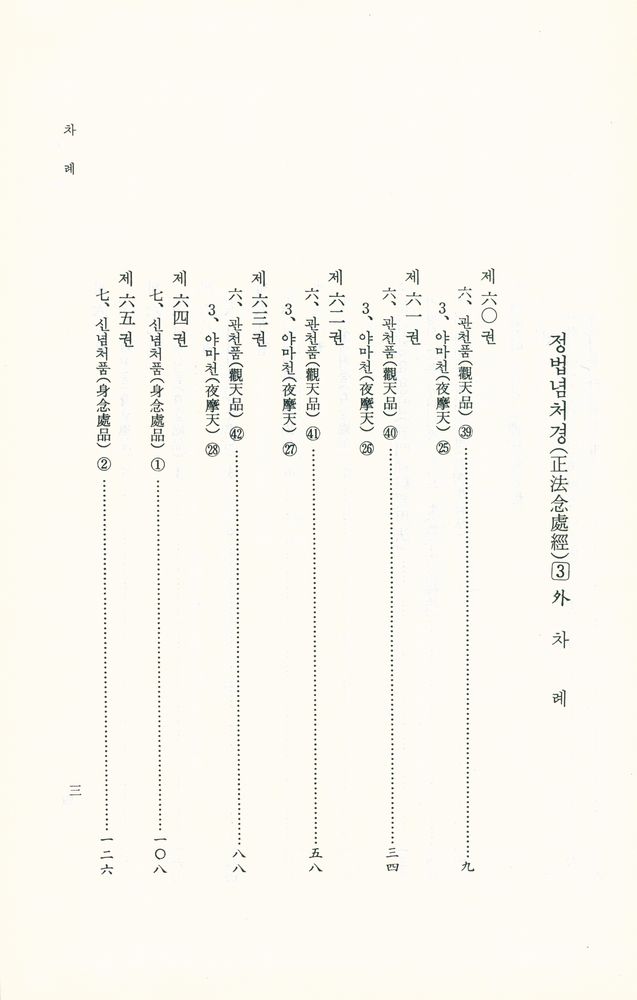 정법념처경(正法念處經) 3 外 차 례
제 六〇 권
六、관천품(觀天品) ㊴ 九
3、야마천(夜摩天) ㉕
제 六一 권
六、관천품(觀天品) ㊵ 三四
3、야마천(夜摩天) ㉖
제 六二 권
六、관천품(觀天品) ㊶ 五八
3、야마천(夜摩天) ㉗
제 六三 권
六、관천품(觀天品) ㊷ 八八
3、야마천(夜摩天) ㉘
제 六四 권
七、신념처품(身念處品) ① 一〇八
제 六五 권
七、신념처품(身念處品) ② 一二六
차 례
三